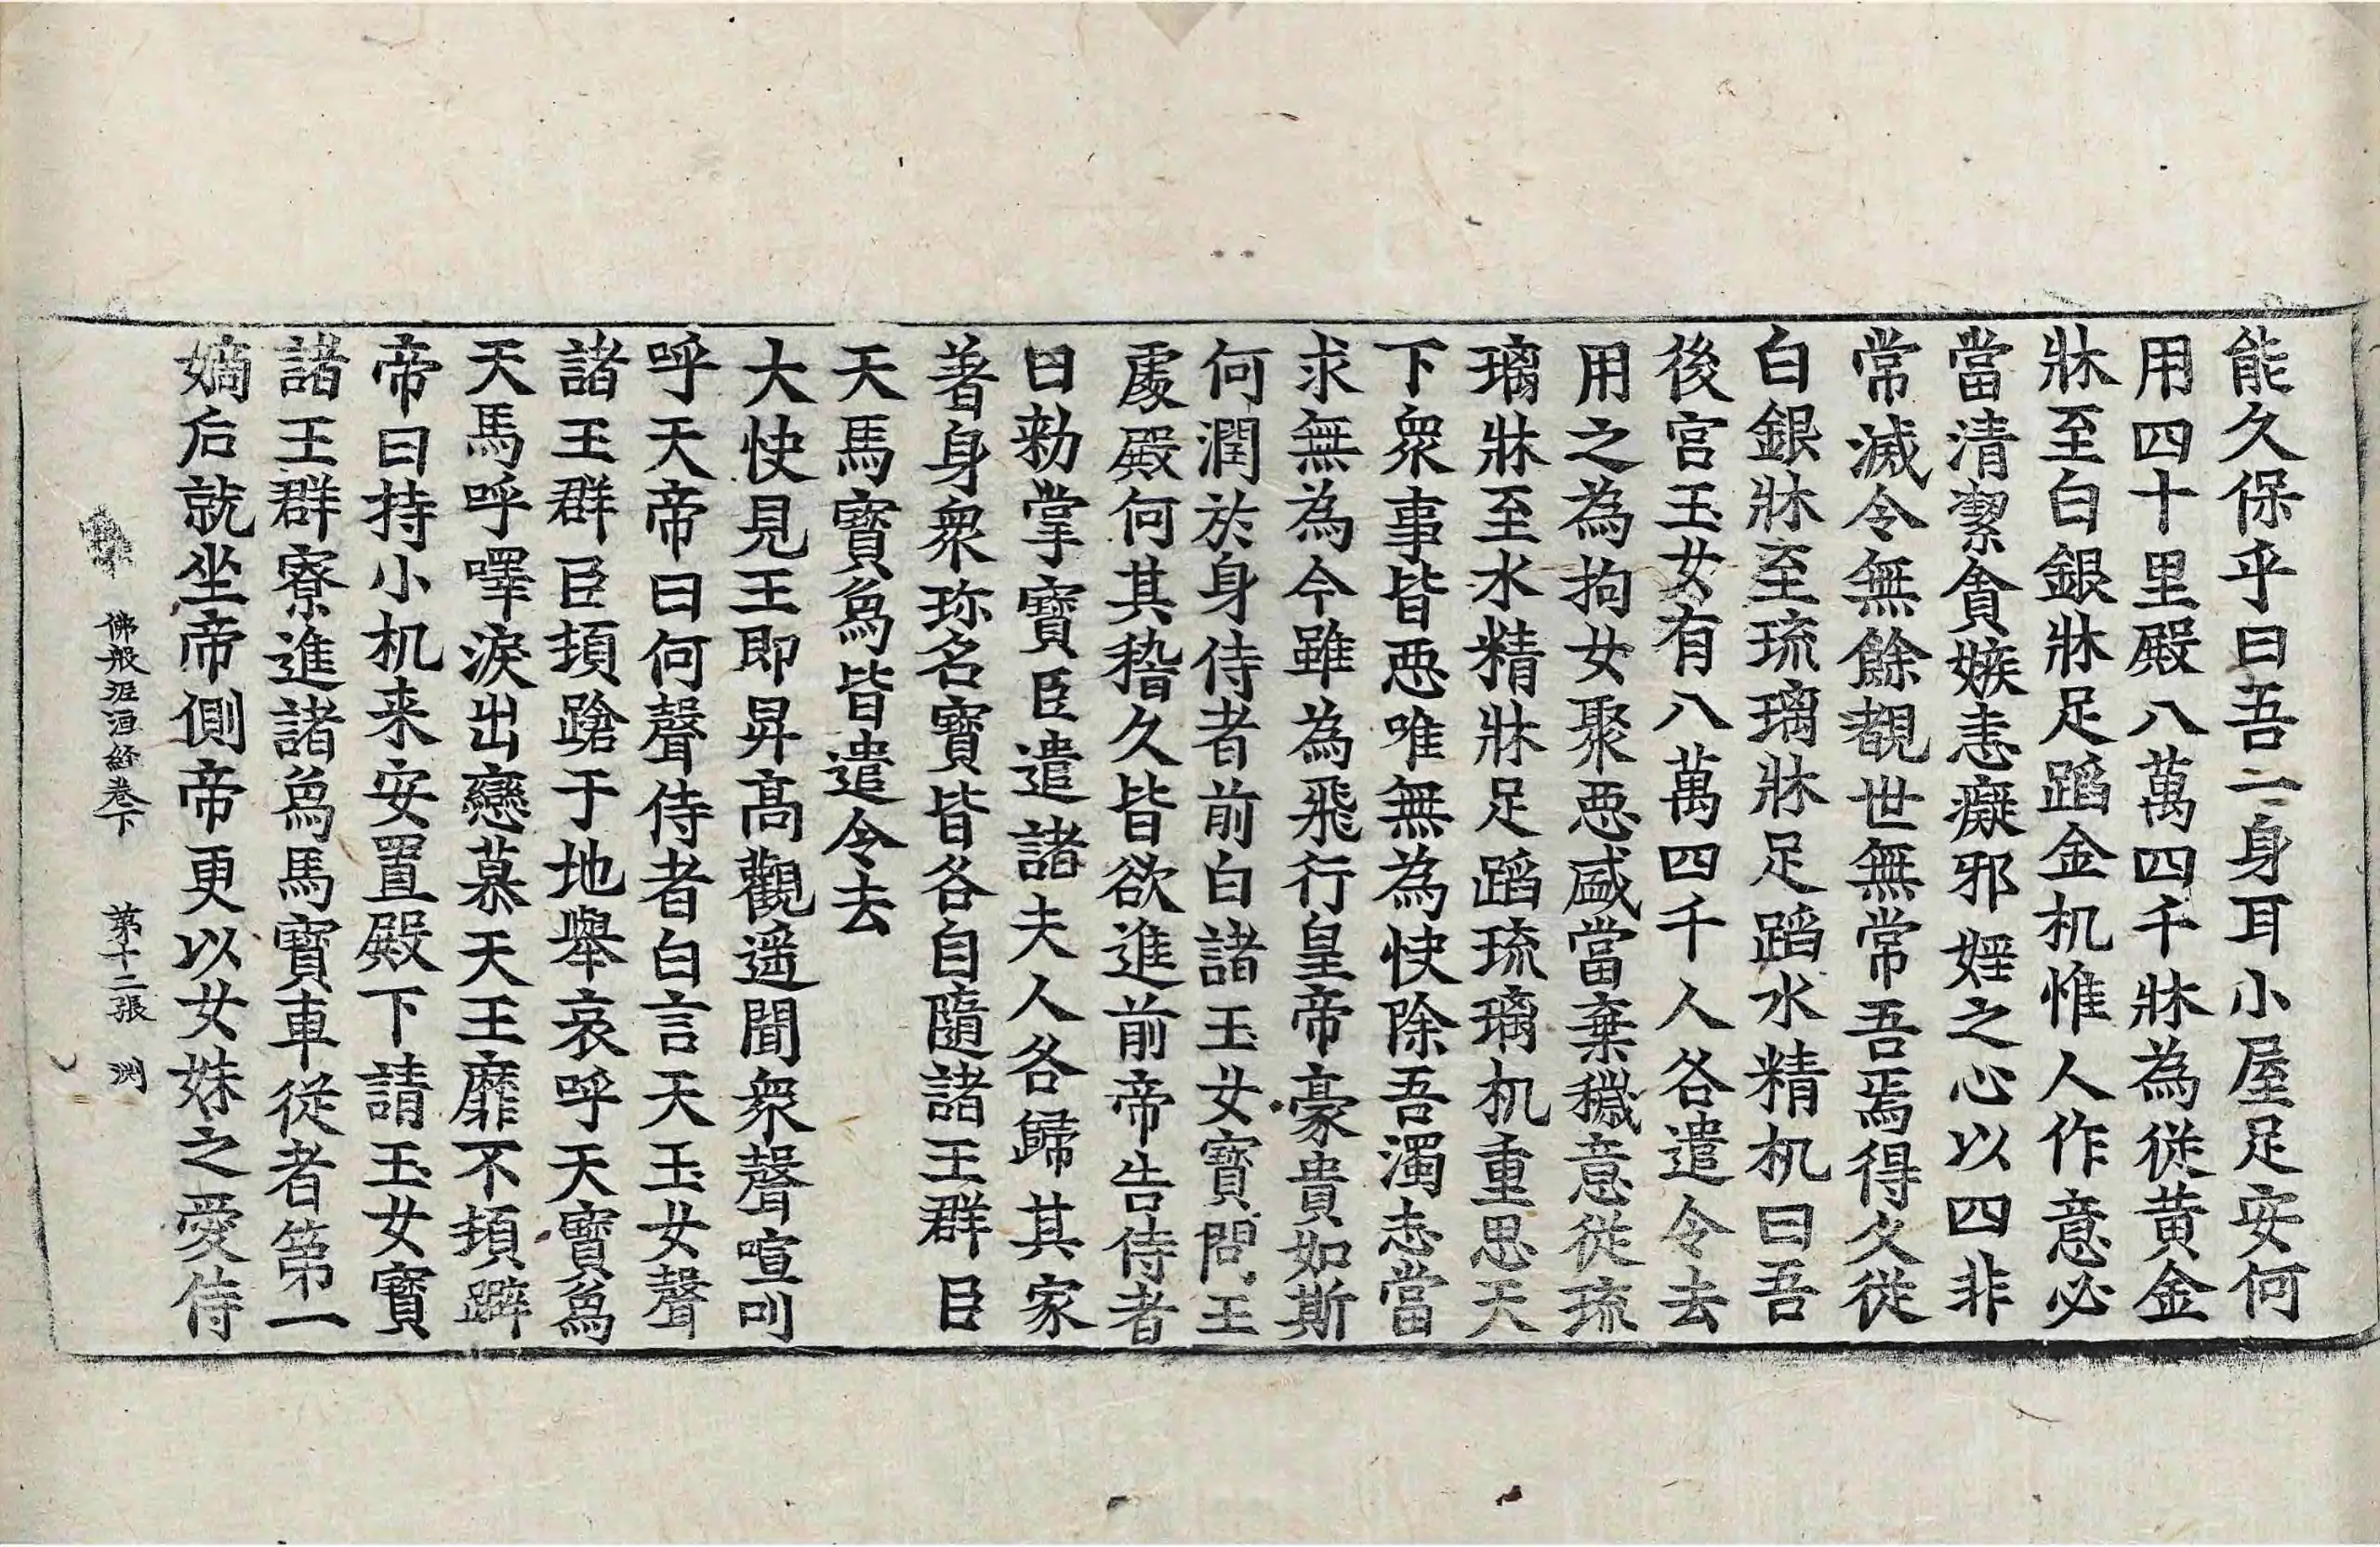 能久保乎曰吾一身耳小屋足安何
用四十里殿八萬四千牀為從黃金
牀至白銀牀足蹈金机惟人作意必
當清潔貪嫉恚癡邪婬之心以四非
常滅令無餘覩世無常吾焉得久從
白銀牀至琉璃牀足蹈水精机曰吾
後宮玉女有八萬四千人各遣令去
用之為拘女聚惡咸當棄穢意從琉
璃牀至水精牀足蹈琉璃机重思天
下衆事皆惡唯無為快除吾濁志當
求無為今雖為飛行皇帝豪貴如斯
何潤於身侍者前白諸玉女寶問王
處殿何其稽久皆欲進前帝告侍者
曰勑掌寶臣遣諸夫人各歸其家
著身衆珎名寶皆各自隨諸王群臣
天馬寶象皆遣令去
大快見王即昇髙觀遥聞衆聲喧叫
呼天帝曰何聲侍者白言天玉女聲
諸王群臣頓蹌于地舉哀呼天寶象
天馬呼嘷淚出戀慕天王靡不頓躃
帝曰持小机来安置殿下請玉女寶
諸王群寮進諸象馬寶車從者第一
嫡后就坐帝側帝更以女妹之愛侍
佛般泥洹經卷下　第十二張　渕